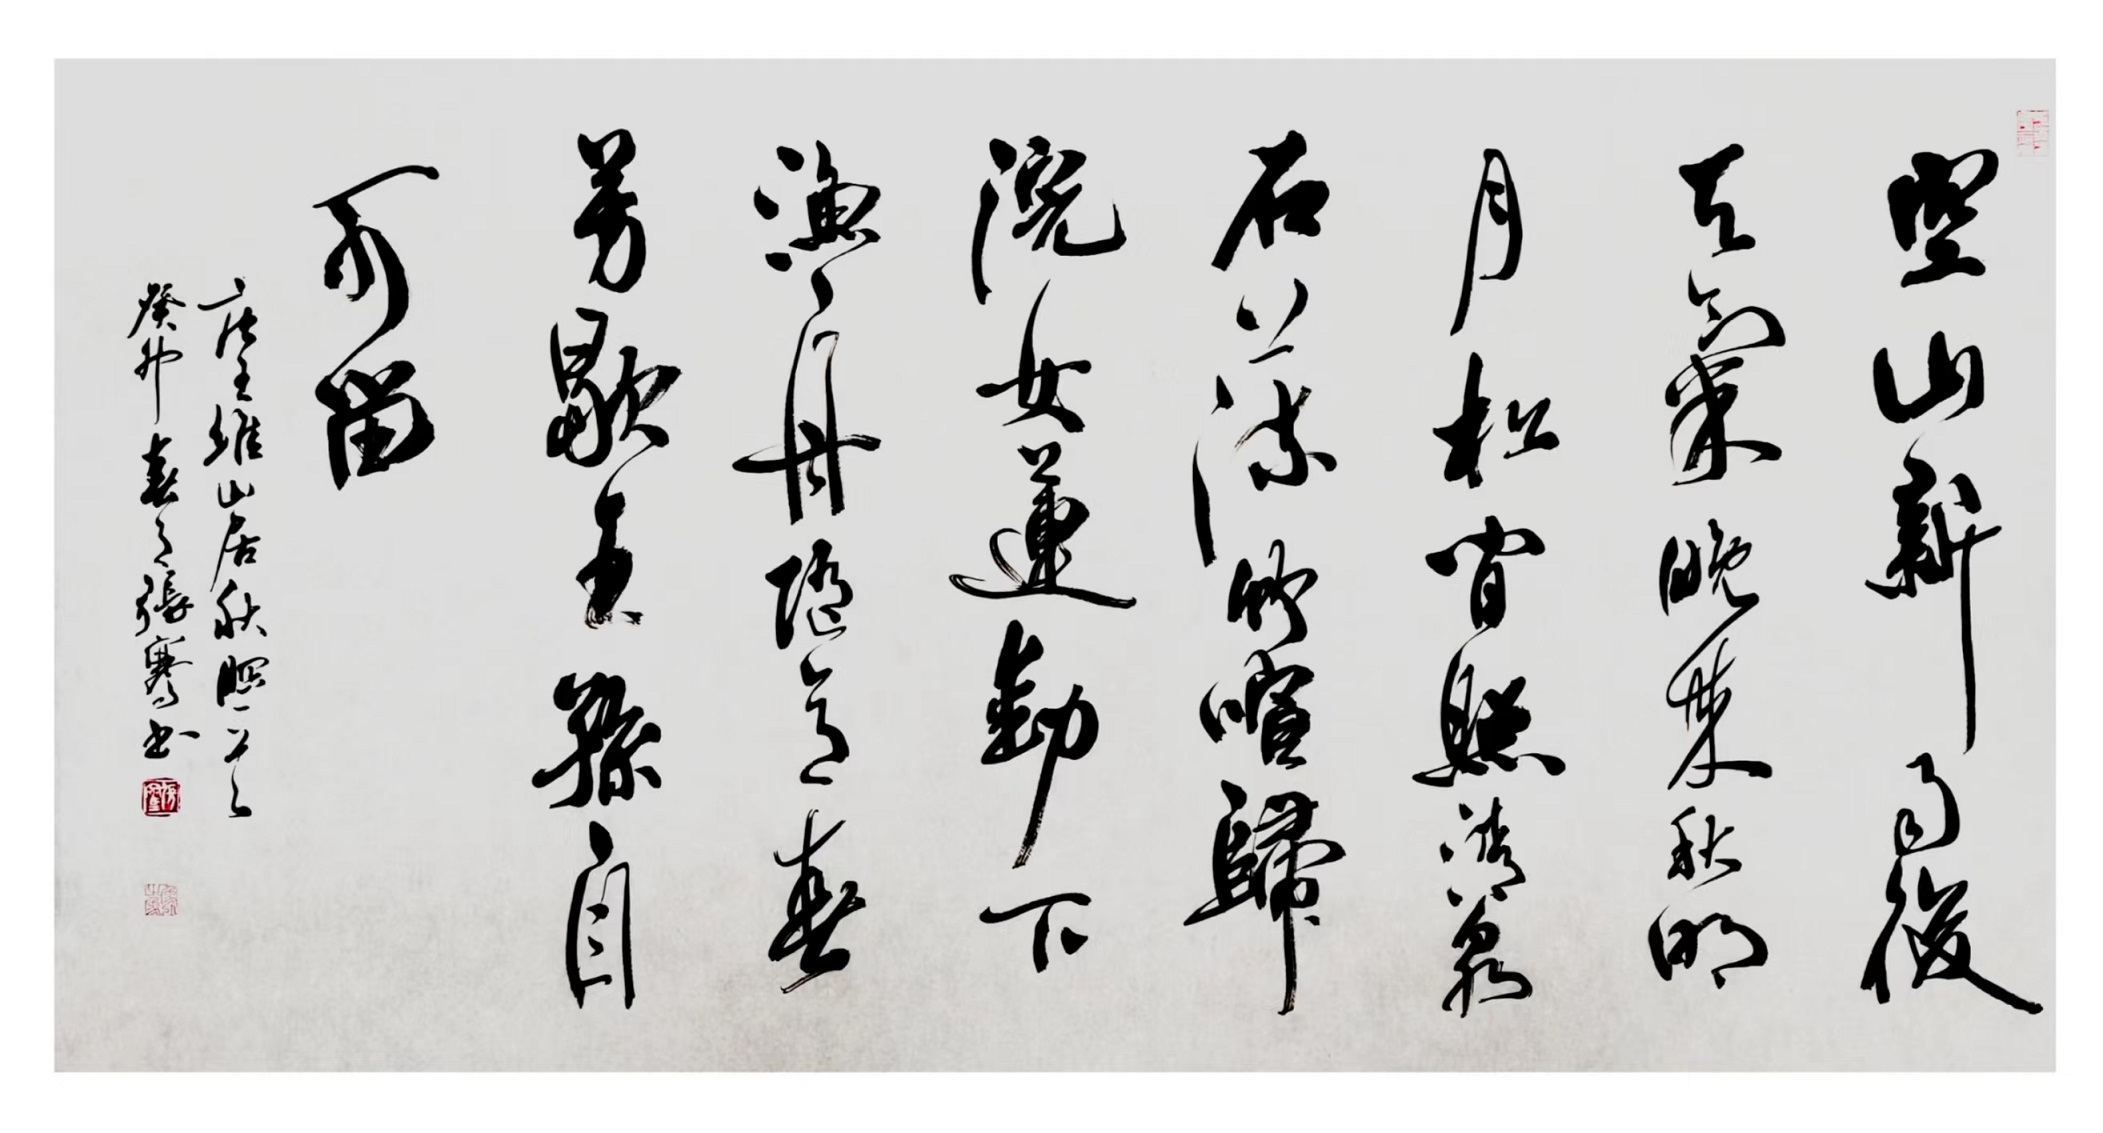 空山新雨後
天氣晚來秋明
月松間照清泉
石上流竹喧歸
浣女蓮動下
漁舟隨意春
芳歇王孫自
可留
唐王維山居秋暝
癸卯春張騫書